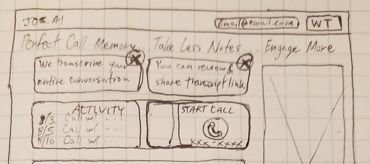 JOT.AI
email@email.com
WT
Perfect Call Memory
Take Less Notes...
Engage More
We transcribe your
entire conversation
You can review &
share transcript link
ACTIVITY
8/3 Call w/ ...
8/5 Call w/ ...
8/10 Call w/ ...
START CALL
xxx-xxxx